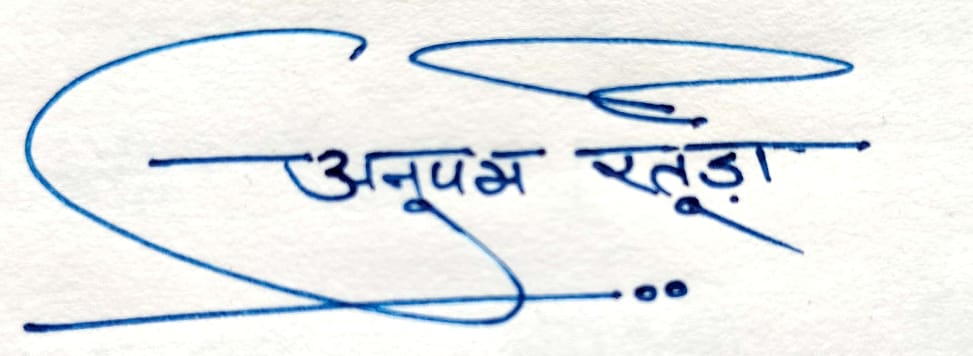 अनूपम रतूड़ी